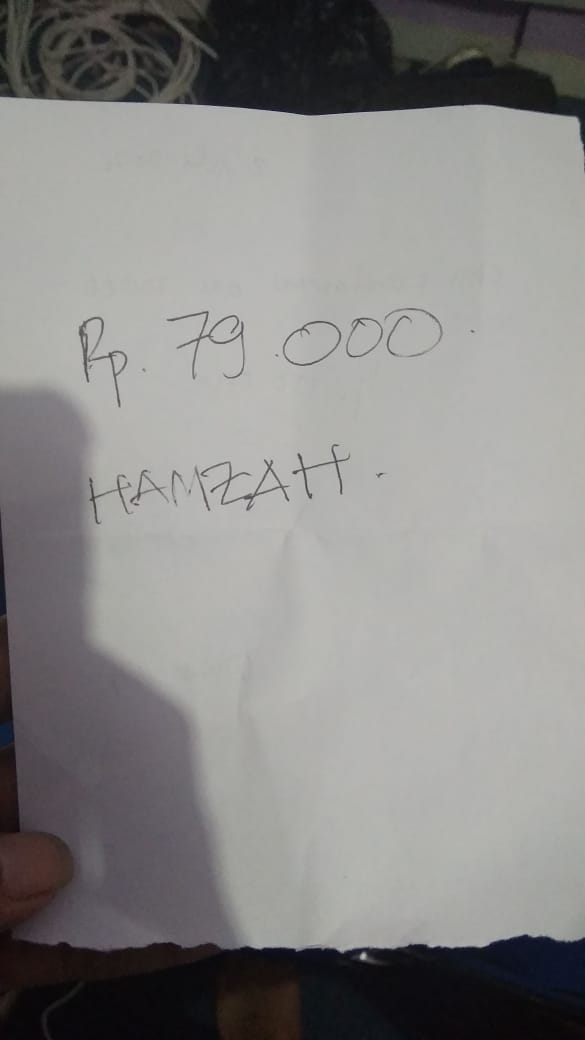 Rp. 79.000.
HAMZAH.